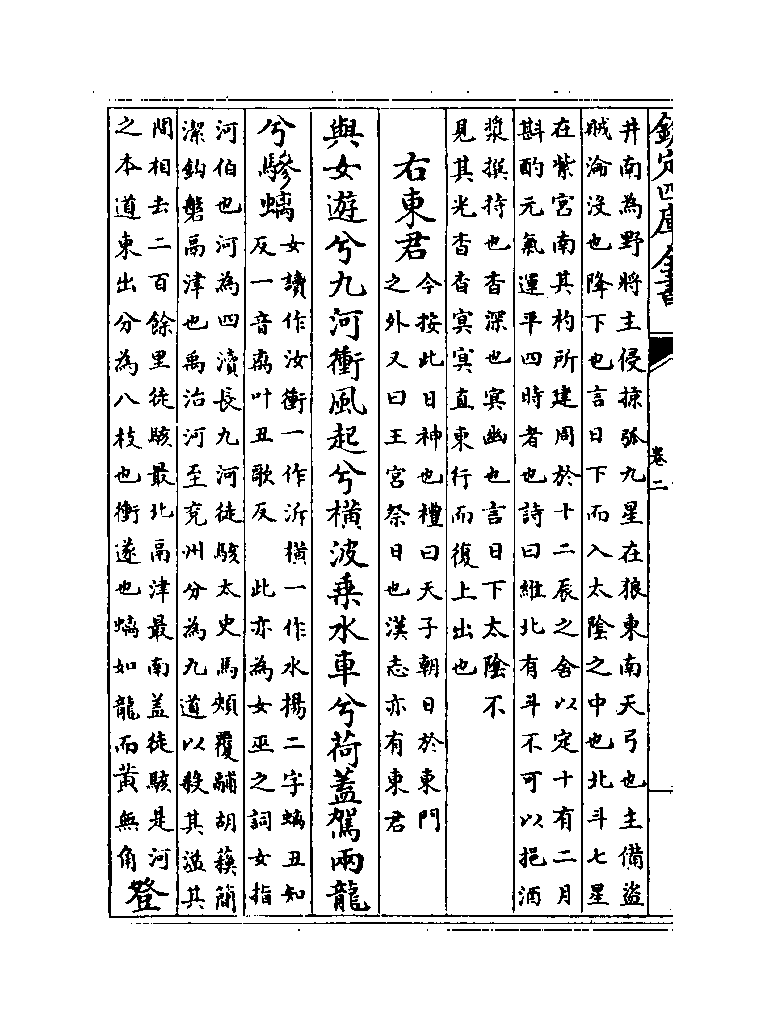 欽定四庫全書
卷二
井南為野將主侵掠弧九星在狼東南天弓也主備盜
賊淪沒也降下也言日下而入太陰之中也北斗七星
在紫宮南其杓所建周於十二辰之舍以定十有二月
斟酌元氣運平四時者也詩曰維北有斗不可以挹酒
漿撰持也杳深也冥幽也言日下太陰不
見其光杳杳冥冥直東行而復上出也
右東君
今按此日神也禮曰天子朝日於東門
之外又曰王宮祭日也漢志亦有東君
與女遊兮九河衝風起兮橫波乘水車兮荷蓋駕兩龍
兮驂螭
女讀作汝衝一作泝橫一作水揚二字螭丑知
反一音离叶丑歌反 此亦為女巫之詞女指
河伯也河為四瀆長九河徒駭太史馬頰覆鬴胡蘇簡
潔鈎磐鬲津也禹治河至兖州分為九道以殺其溢其
間相去二百餘里徒駭最北鬲津最南蓋徒駭是河
之本道東出分為八枝也衝遂也螭如龍而黃無角
登